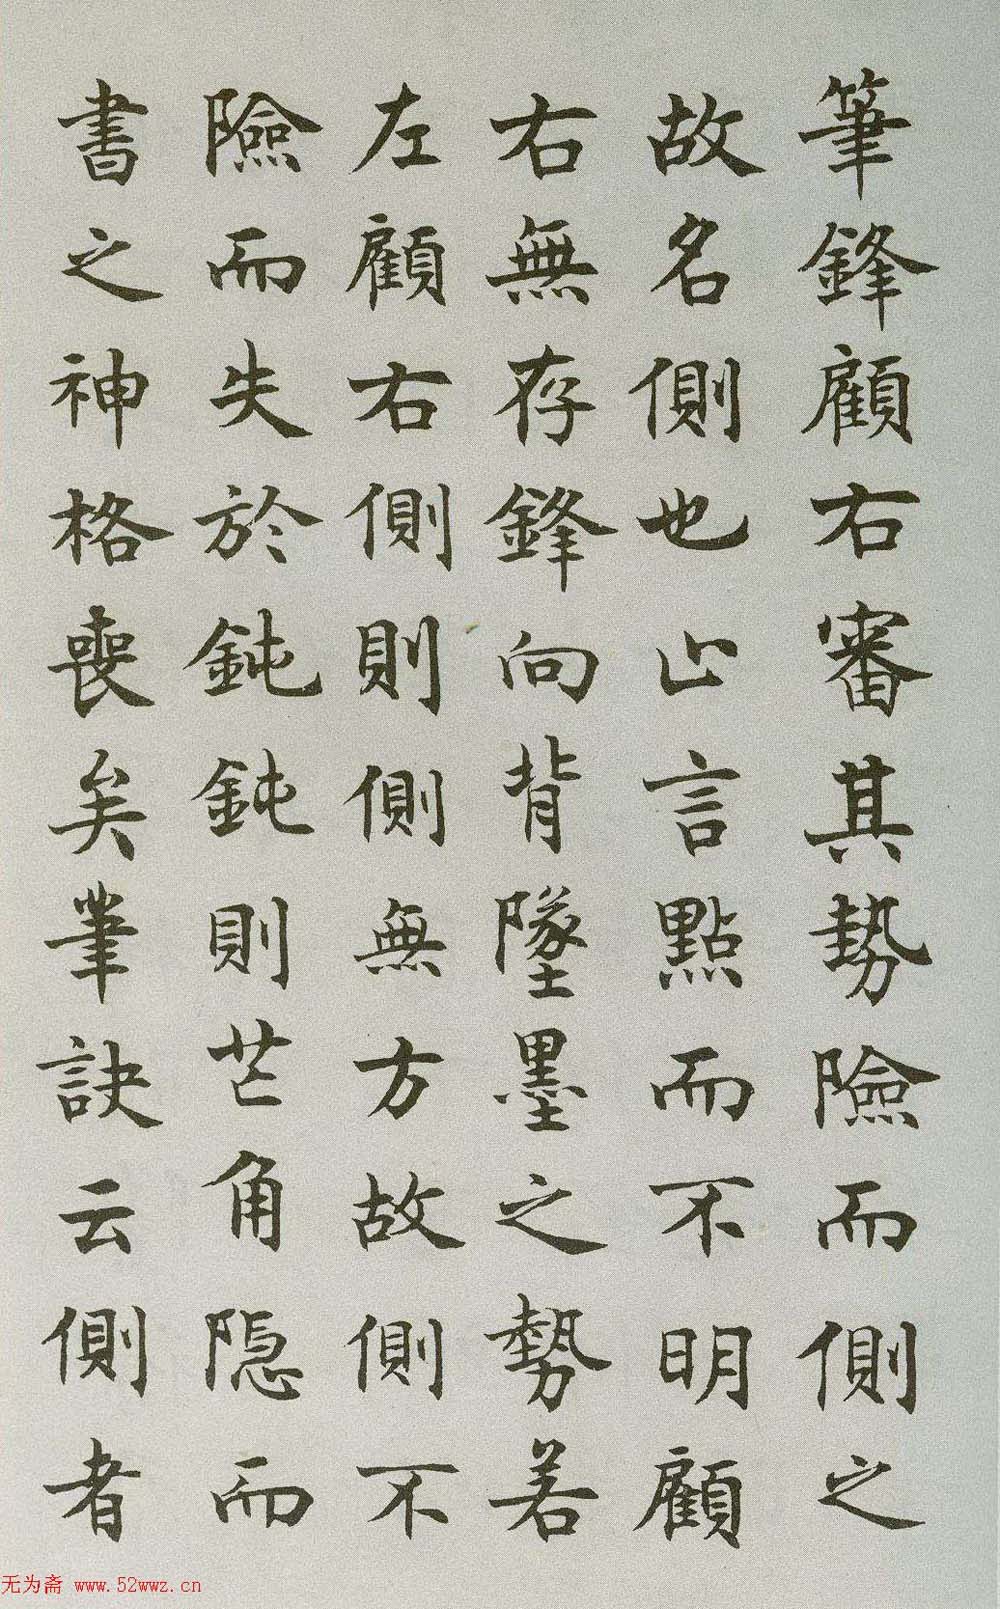 筆鋒顧右審其勢險而側之
故名側也止言點而不明顧
右無存鋒向背墜墨之勢若
左顧右側則側無方故側不
險而失於鈍鈍則芒角隱而
書之神格喪矣筆訣云側者
无为斋 www.52wwz.cn